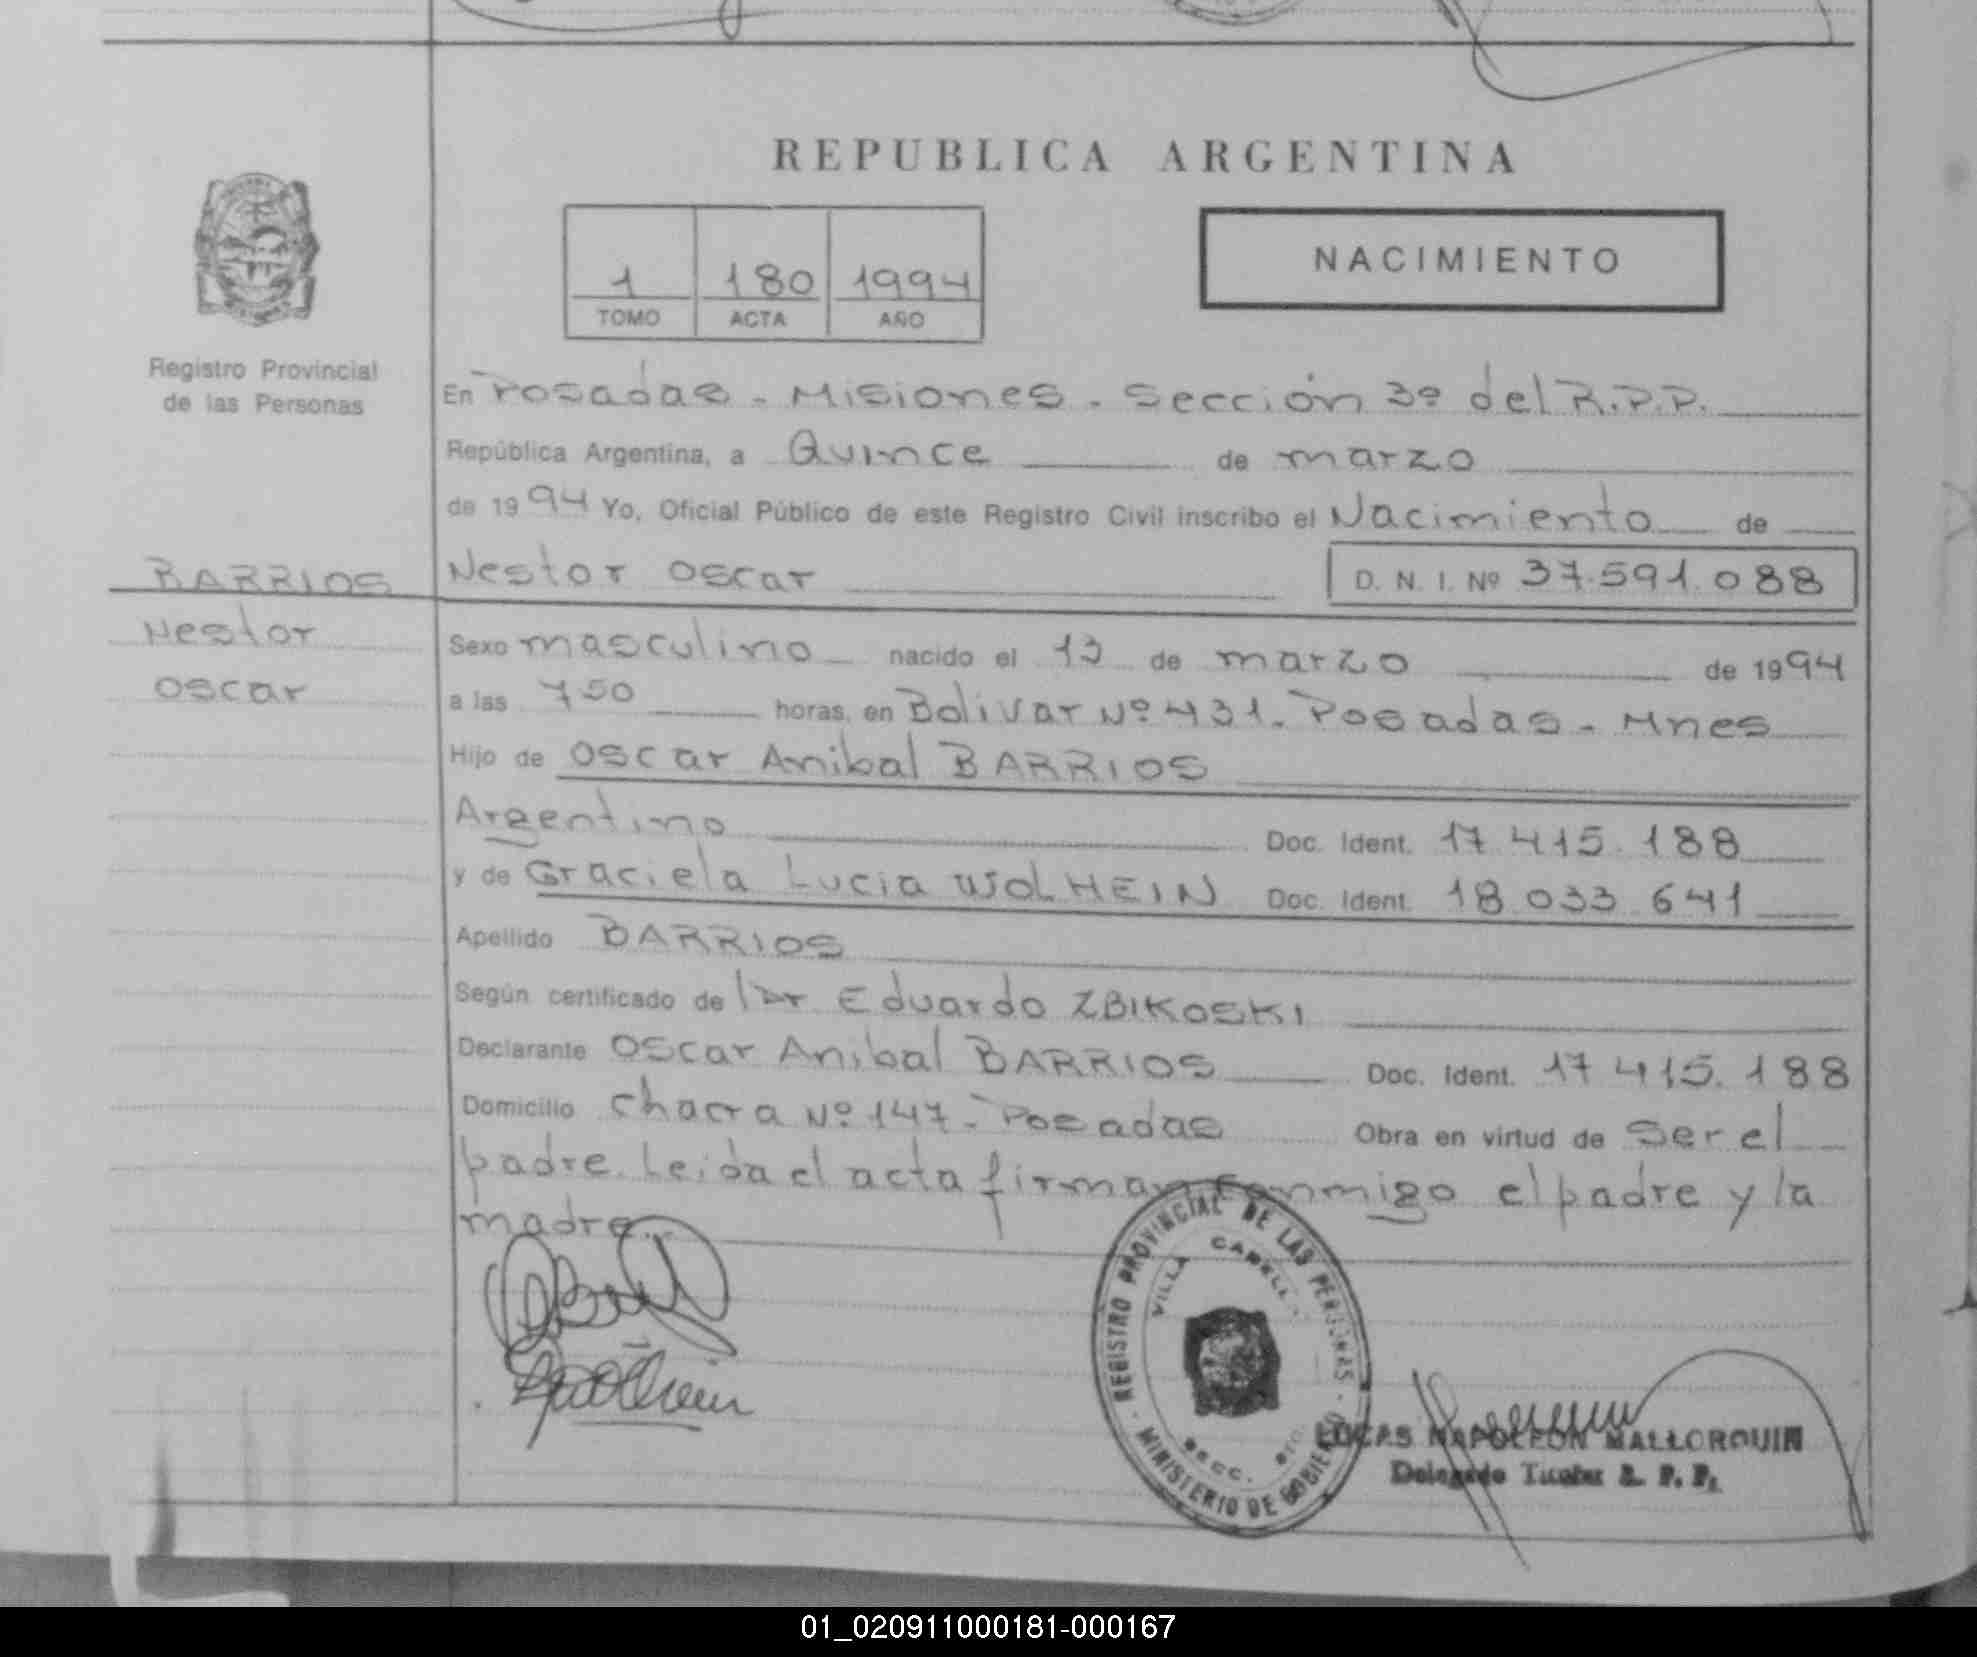 REPUBLICA ARGENTINA
1 180 1994
TOMO ACTA AÑO
NACIMIENTO
Registro Provincial
de las Personas
En Posadas - Misiones - Sección 3º del R.P.P.
República Argentina, a Quince de marzo
de 1994 Yo, Oficial Público de este Registro Civil inscribo el Nacimiento de
Nestor Oscar D. N. I. Nº 37.591.088
BARRIOS
Nestor
Oscar
Sexo masculino nacido el 13 de marzo de 1994
a las 750 horas, en Bolivar Nº 431. Posadas - Mnes
Hijo de Oscar Anibal BARRIOS
Argentino Doc. Ident. 17.415.188
y de Graciela Lucia WOLHEIN Doc. Ident. 18.033.641
Apellido BARRIOS
Según certificado de Dr Eduardo ZBIKOSKI
Declarante Oscar Anibal BARRIOS Doc. Ident. 17.415.188
Domicilio Chacra Nº 147 - Posadas Obra en virtud de Ser el
padre. Leida el acta firman conmigo el padre y la
madre.
REGISTRO PROVINCIAL DE LAS PERSONAS - MINISTERIO DE GOBIERNO -
VILLA
SECC.
LUCAS NAPOLEON MALLORQUIN
Delegado Titular R. P. P.
01_020911000181-000167